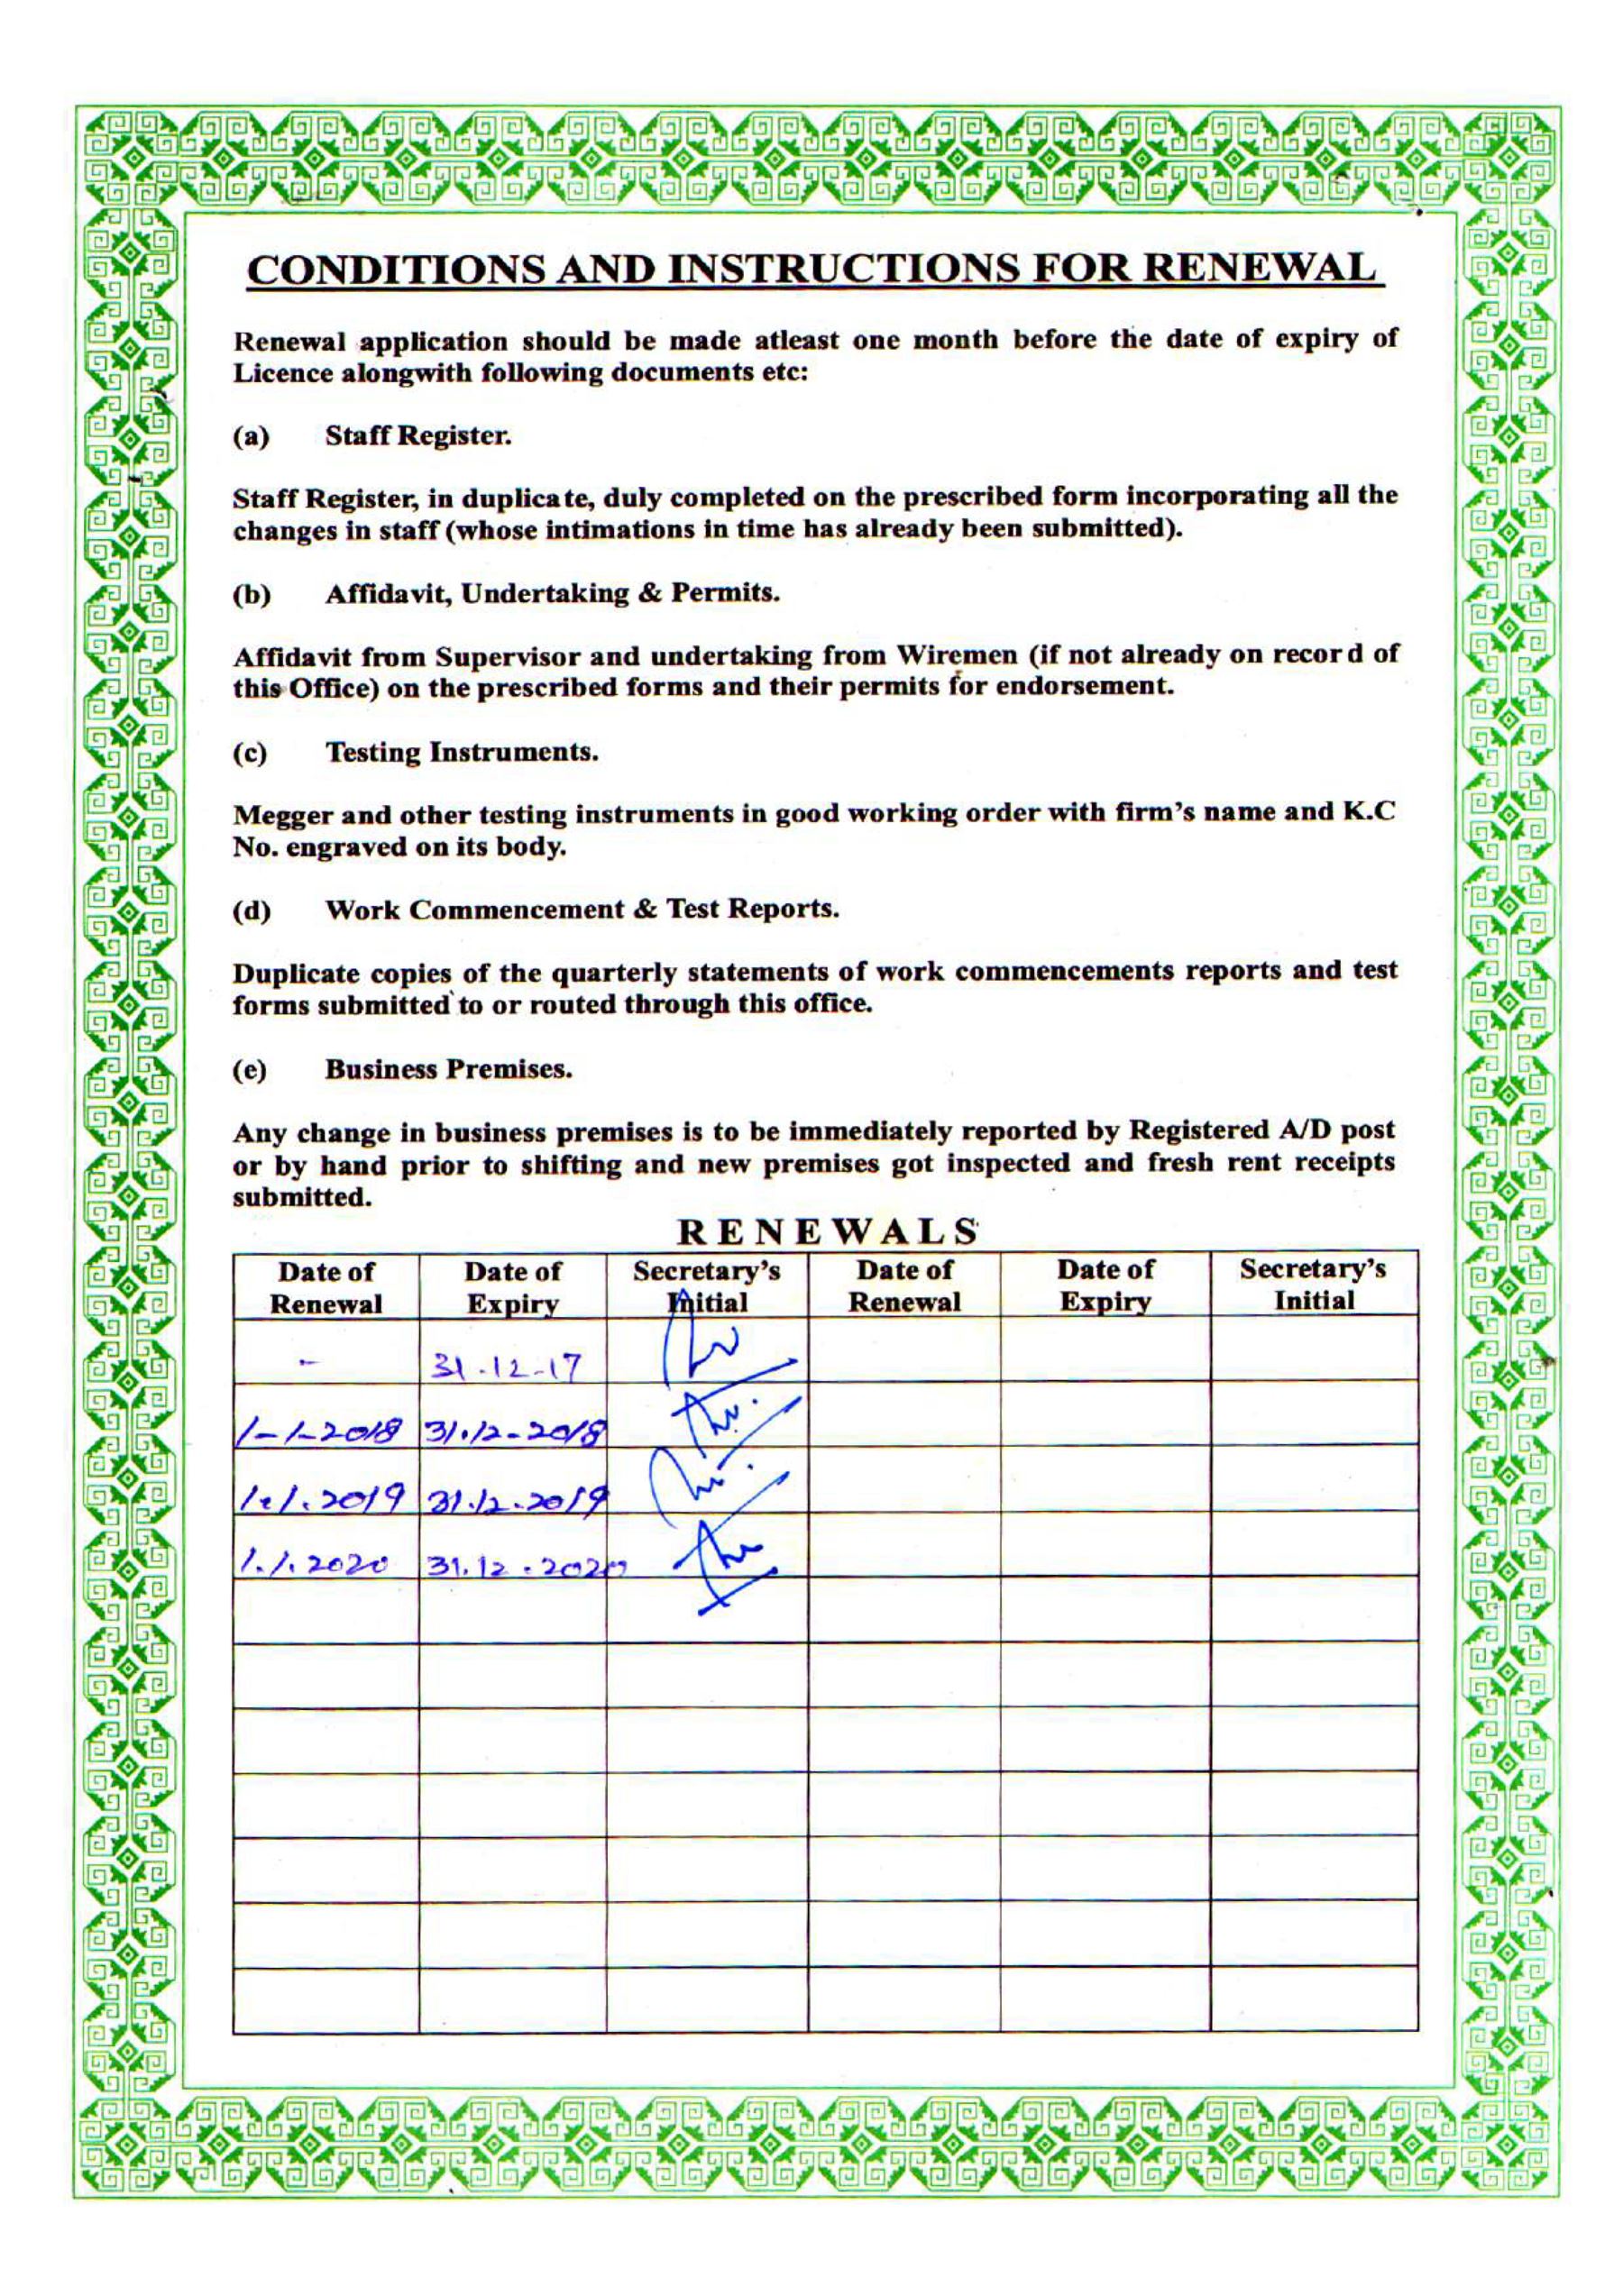 CONDITIONS AND INSTRUCTIONS FOR RENEWAL
Renewal application should be made atleast one month before the date of expiry of
Licence alongwith following documents etc:
(a) Staff Register.
Staff Register, in duplicate, duly completed on the prescribed form incorporating all the
changes in staff (whose intimations in time has already been submitted).
(b) Affidavit, Undertaking & Permits.
Affidavit from Supervisor and undertaking from Wiremen (if not already on record of
this Office) on the prescribed forms and their permits for endorsement.
(c) Testing Instruments.
Megger and other testing instruments in good working order with firm's name and K.C
No. engraved on its body.
(d) Work Commencement & Test Reports.
Duplicate copies of the quarterly statements of work commencements reports and test
forms submitted to or routed through this office.
(e) Business Premises.
Any change in business premises is to be immediately reported by Registered A/D post
or by hand prior to shifting and new premises got inspected and fresh rent receipts
submitted.
RENEWALS
Date of Date of Secretary's Date of Date of Secretary's
Renewal Expiry Initial Renewal Expiry Initial
- 31-12-17
1-1-2018 31.12-2018
1.1.2019 31.12.2019
1.1.2020 31.12.2020